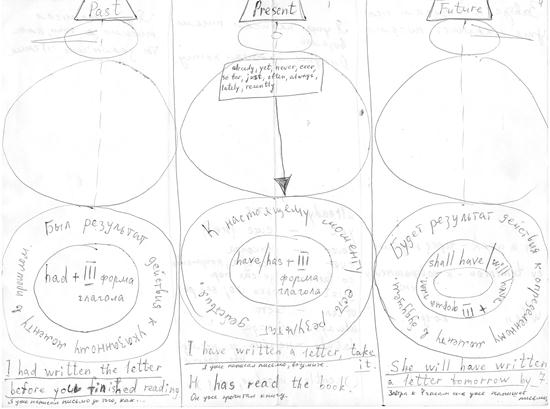 Past
Present
Future
already, yet, never, ever,
so far, just, often, always,
lately, recently
Был результат действия к указанному моменту в прошлом.
had + III форма
глагола
К настоящему моменту есть результат действия.
have/has + III
форма
глагола
Будет результат действия к определенному моменту в будущем.
shall have/will have
+ III форма глагола
I had written the letter
before you finished reading
Я уже написал письмо до того, как...
I have written a letter, take
it.
Я уже написал письмо, возьмите
H has read the book.
Он уже прочитал книгу.
She will have written
a letter tomorrow by 7.
Завтра к 7 часам она уже напишет
письмо